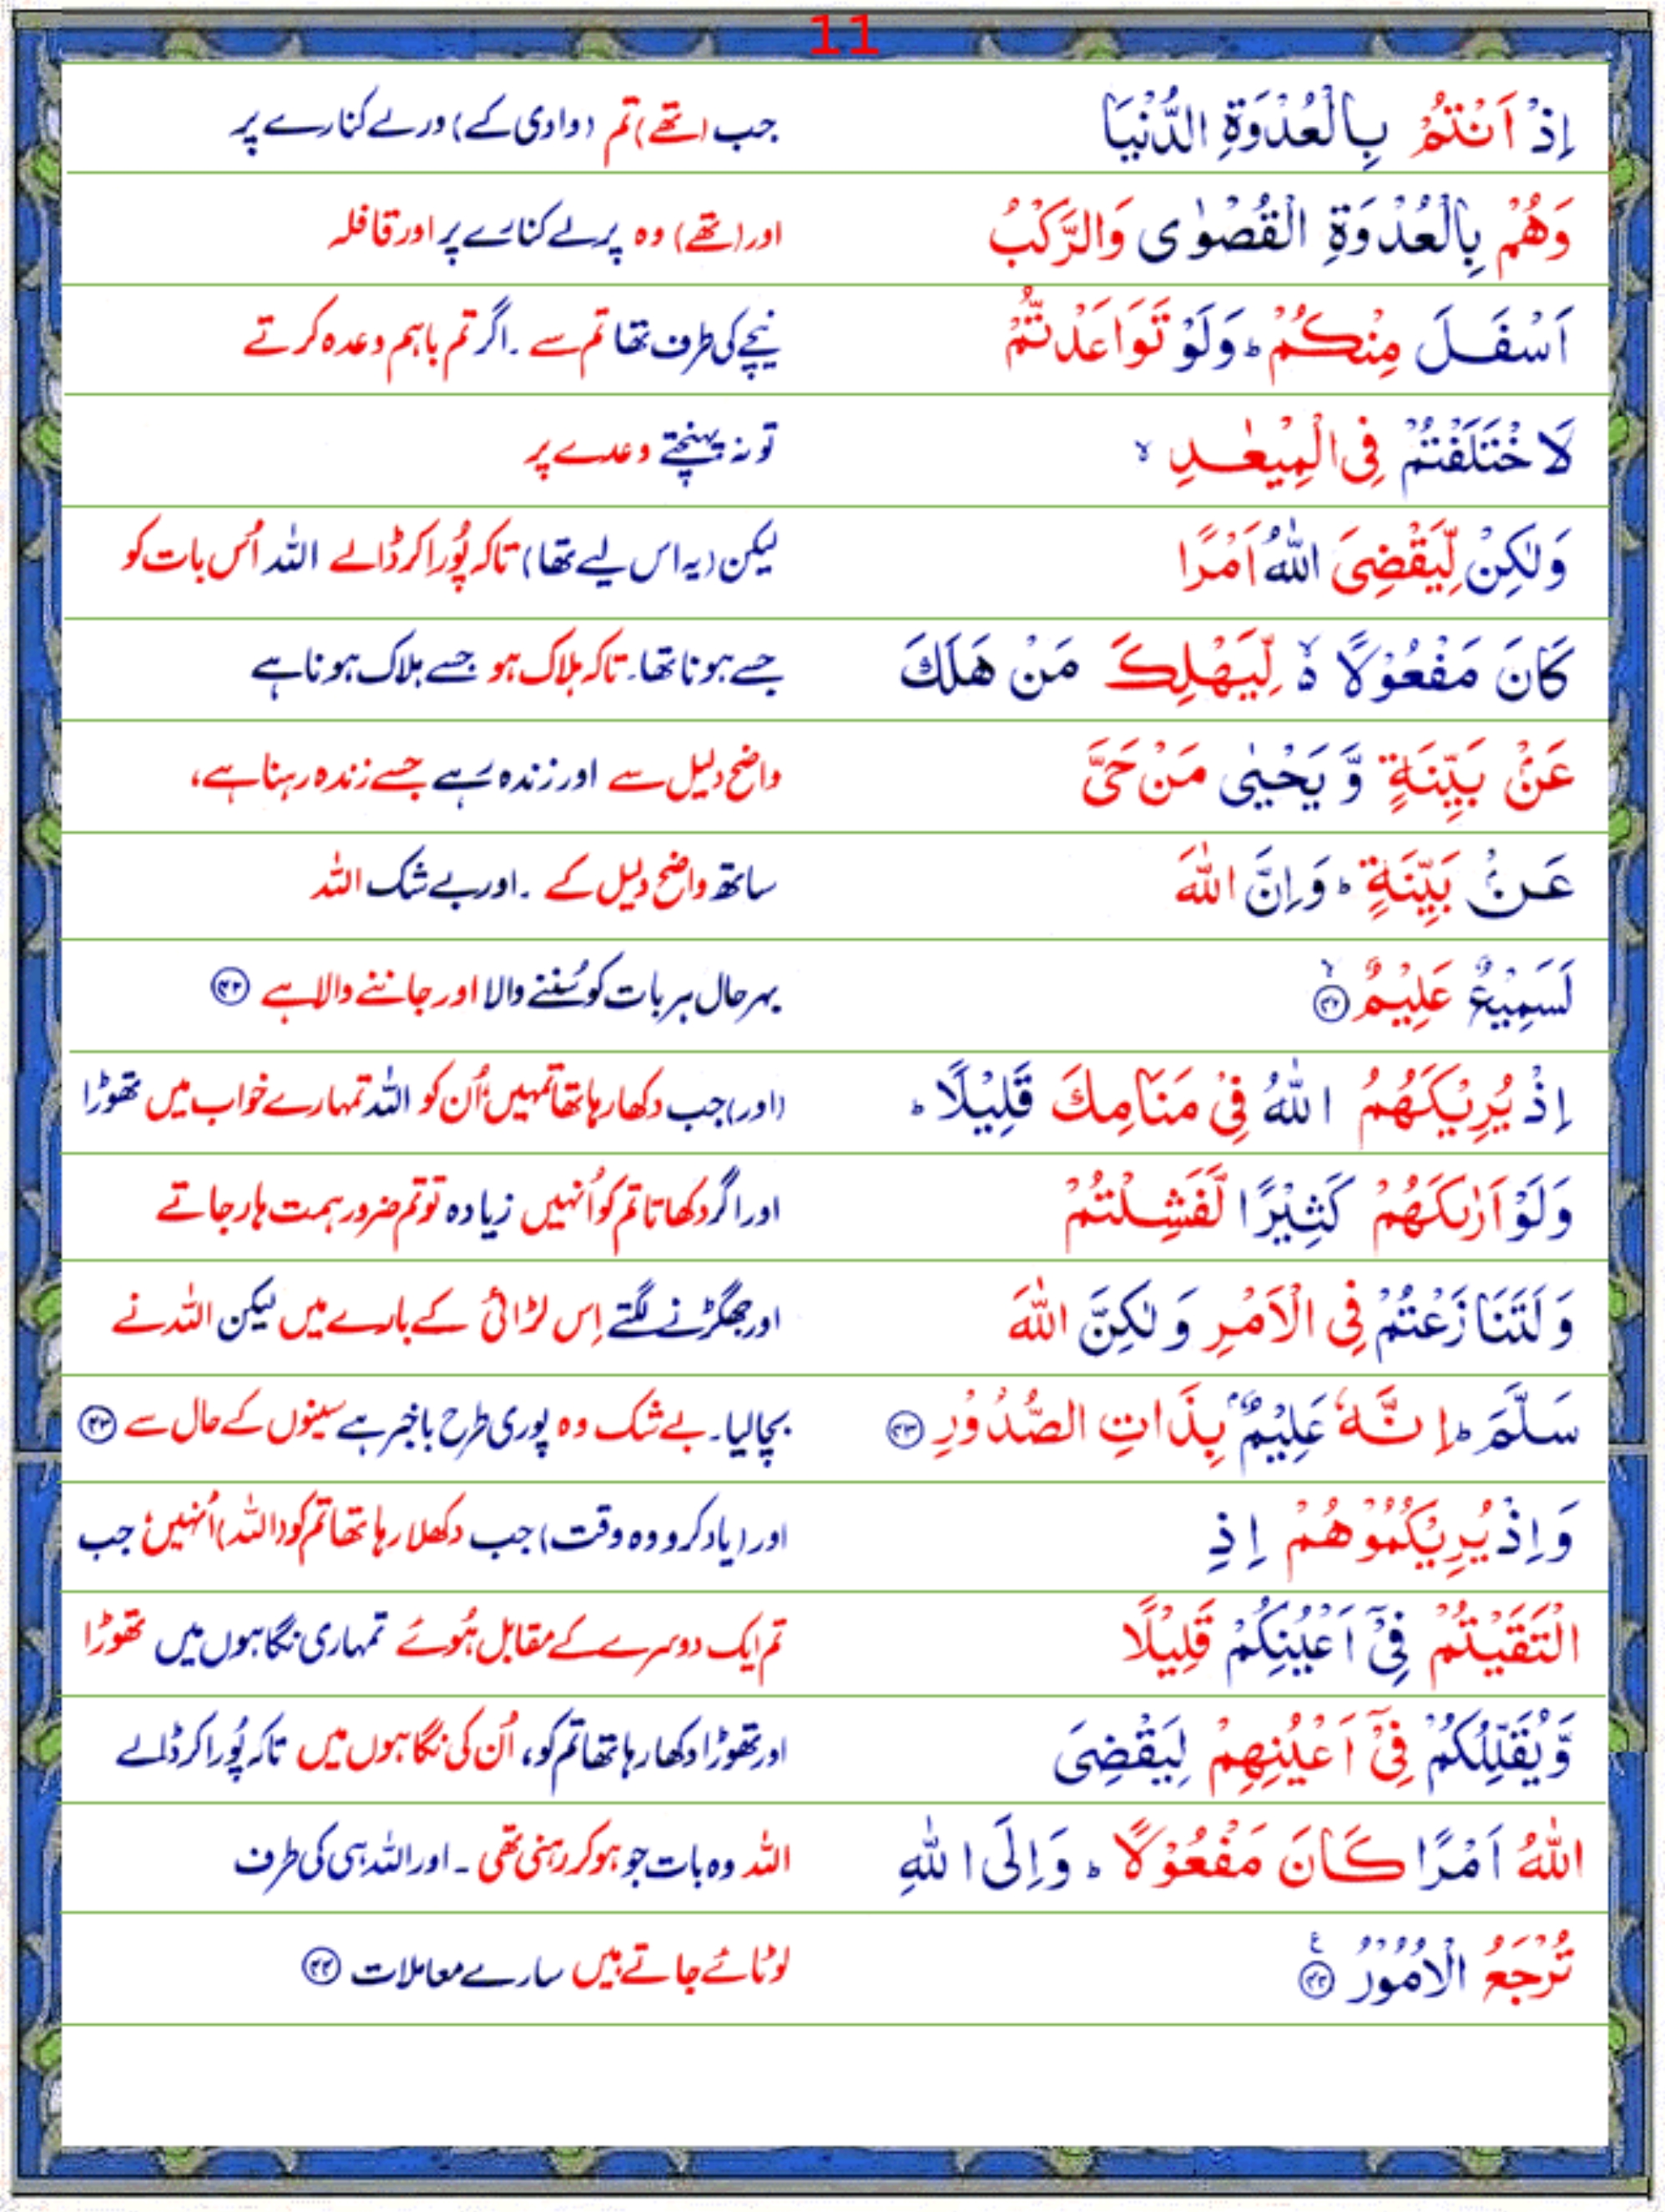 11
اِذْ اَنْتُمْ بِالْعُدْوَةِ الدُّنْيَا جب (تھے) تم (وادی کے) ورلے کنارے پر
وَهُمْ بِالْعُدْوَةِ الْقُصْوٰى وَالرَّكْبُ اور (تھے) وہ پرلے کنارے پر اور قافلہ
اَسْفَلَ مِنْكُمْ ؕ وَلَوْ تَوَاعَدْتُّمْ نیچے کی طرف تھا تم سے ۔ اگر تم باہم وعدہ کرتے
لَاخْتَلَفْتُمْ فِى الْمِيْعٰدِ ۙ تو نہ پہنچتے وعدے پر
وَلٰكِنْ لِّيَقْضِىَ اللّٰهُ اَمْرًا لیکن (یہ اس لیے تھا) تاکہ پُورا کرڈالے اللہ اُس بات کو
كَانَ مَفْعُوْلًا ۙ۬ لِّيَهْلِكَ مَنْ هَلَكَ جسے ہونا تھا۔ تاکہ ہلاک ہو جسے ہلاک ہونا ہے
عَنْۢ بَيِّنَةٍ وَّيَحْيٰى مَنْ حَىَّ واضح دلیل سے اور زندہ رہے جسے زندہ رہنا ہے،
عَنْۢ بَيِّنَةٍ ؕ وَاِنَّ اللّٰهَ ساتھ واضح دلیل کے ۔ اور بے شک اللہ
لَسَمِيْعٌ عَلِيْمٌ ۙ‏﴿۴۲﴾ بہرحال ہر بات کو سُننے والا اور جاننے والا ہے ﴿۴۲﴾
اِذْ يُرِيْكَهُمُ اللّٰهُ فِىْ مَنَامِكَ قَلِيْلًا ؕ (اور) جب دکھا رہا تھا تمہیں اُن کو اللہ تمہارے خواب میں تھوڑا
وَلَوْ اَرٰٮكَهُمْ كَثِيْرًا لَّفَشِلْتُمْ اور اگر دکھاتا تم کو اُنہیں زیادہ تو تم ضرور ہمت ہار جاتے
وَلَتَنَازَعْتُمْ فِى الْاَمْرِ وَلٰكِنَّ اللّٰهَ اور جھگڑنے لگتے اِس لڑائی کے بارے میں لیکن اللہ نے
سَلَّمَ ؕ اِنَّهٗ عَلِيْمٌۢ بِذَاتِ الصُّدُوْرِ ﴿۴۳﴾ بچالیا۔ بے شک وہ پوری طرح باخبر ہے سینوں کے حال سے ﴿۴۳﴾
وَاِذْ يُرِيْكُمُوْهُمْ اِذِ اور (یاد کرو وہ وقت) جب دکھلا رہا تھا تم کو (اللہ) اُنہیں جب
الْتَقَيْتُمْ فِىْۤ اَعْيُنِكُمْ قَلِيْلًا تم ایک دوسرے کے مقابل ہُوئے تمہاری نگاہوں میں تھوڑا
وَّيُقَلِّلُكُمْ فِىْۤ اَعْيُنِهِمْ لِيَقْضِىَ اور تھوڑا دکھا رہا تھا تم کو، اُن کی نگاہوں میں تاکہ پُورا کرڈالے
اللّٰهُ اَمْرًا كَانَ مَفْعُوْلًا ؕ وَاِلَى اللّٰهِ اللہ وہ بات جو ہو کر رہنی تھی ۔ اور اللہ ہی کی طرف
تُرْجَعُ الْاُمُوْرُ ﴿۴۴﴾ ع لوٹائے جاتے ہیں سارے معاملات ﴿۴۴﴾